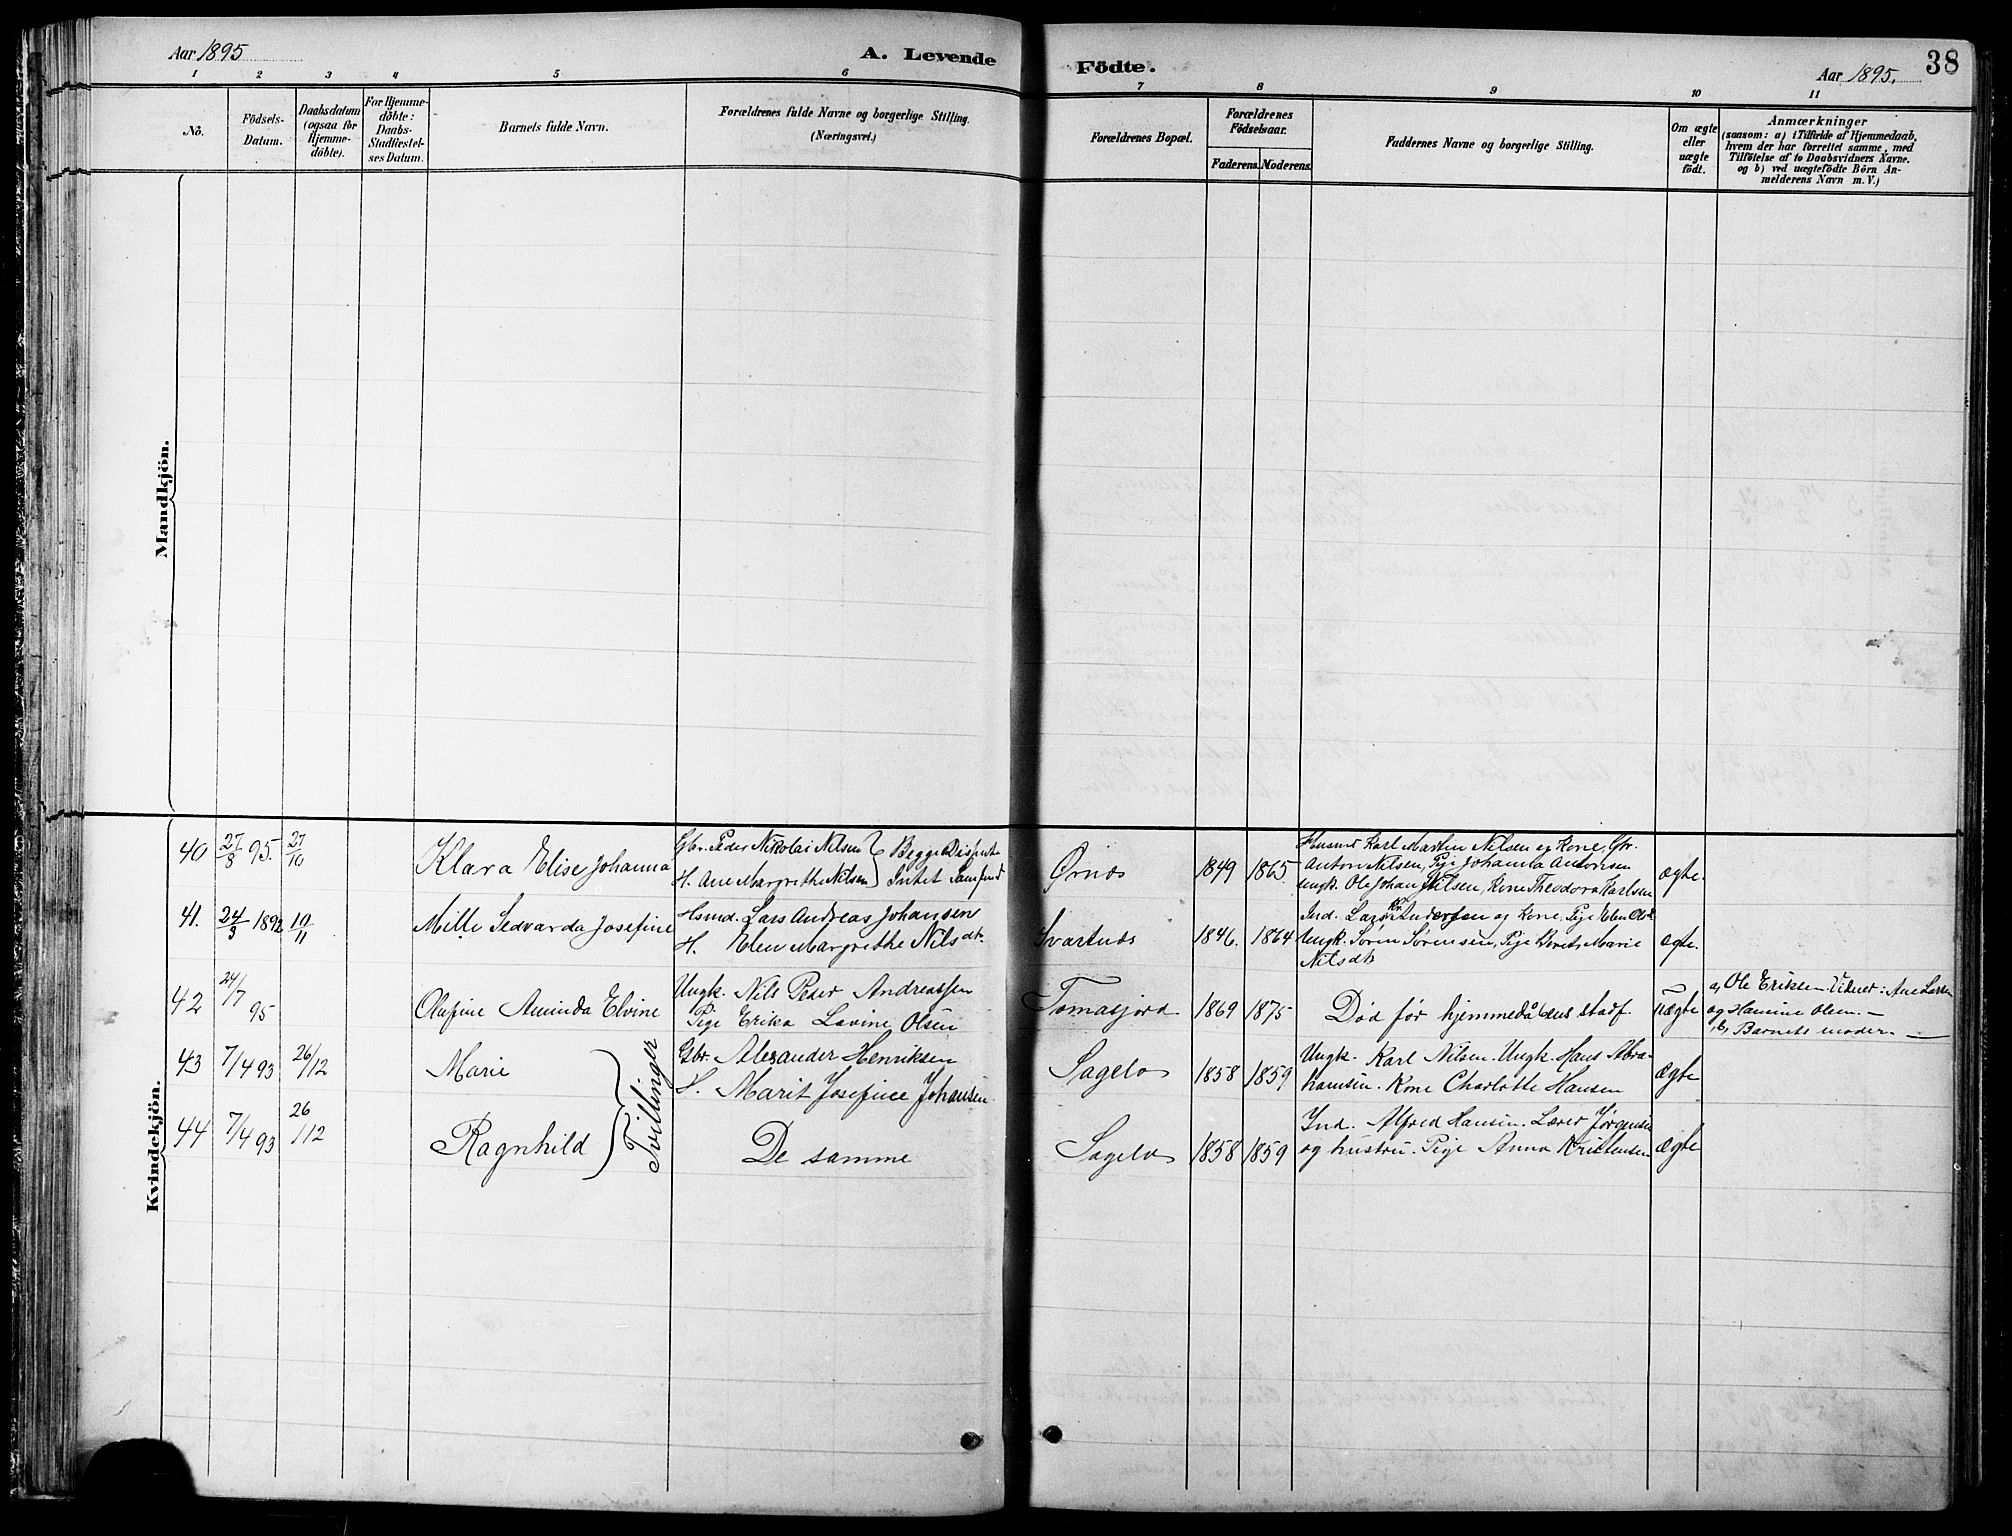 Aar 1895
A. Levende
Födte.
Aar 1895.
38
1 2 3 4 5 6 7 8 9 10 11
No.
Födsels-
Datum.
Daabsdatum
(ogsaa for
Hjemme-
döbte).
For Hjemme-
döbte:
Daabs-
Stadfæstel-
ses Datum.
Barnets fulde Navn.
Forældrenes fulde Navne og borgerlige Stilling.
(Næringsvei.)
Forældrenes Bopæl.
Forældrenes
Födselsaar.
Faderens. Moderens.
Faddernes Navne og borgerlige Stilling.
Om ægte
eller
uægte
födt.
Anmærkninger
(saasom: a) i Tilfælde af Hjemmedaab,
hvem der har forrettet samme, med
Tilföielse af to Daabsvidners Navne.
og b) ved uægtefödte Börn An-
melderens Navn m. V.)
Mandkjön.
Kvindekjön.
40 27/8 95. 27/10
Klara Elise Johanna
Gbr. Peder Nikolai Nilsen } Begge Dissente
H. Ane Margrethe Nilsen } Intet Samfund
Ørnes 1849 1865
Husmd Karl Martin Nilsen og Kone, Gbr.
Anton Nilsen, Pige Johanna Antonsen
Ungk. Ole Johan Nilsen, Kone Theodora Karlsen
ægte.
41. 24/3 1892 10/11
Mille Sedvarda Josefine
Hsmd. Lars Andreas Johansen
H. Elen Margrethe Nilsdt.
Svartnes 1846. 1864
Ind. Lars Andersen og Kone, Pige Elen
Ungk. Søren Sørensen, Pige Berit Marie
Nilsdt
ægte.
42 24/7 95
Olufine Aminda Elvine
Ungk. Nils Peder Andreassen
Pige Erika Lovine Olsen
Tomasjord 1869 1875
Død før hjemmedåbens stadf.
uægte
a, Ole Eriksen. Vidner: Ane Larsen
og Hanine Olsen. —
b, Barnets moder. —
43 7/4 93 26/12
Marie
Gbr. Alexander Henriksen
H. Marit Josefine Johansen
Tvillinger
Sagelv 1858 1859
Ungk. Karl Nilsen. Ungk. Hans Abra-
hamsen. Kone Charlotte Hansen
ægte
44 7/4 93 26/12
Ragnhild
De samme
Sagelv 1858 1859
Ind. Alfred Hansen. Lærer Jørgensen
og hustru. Pige Anna Kristensen
ægte